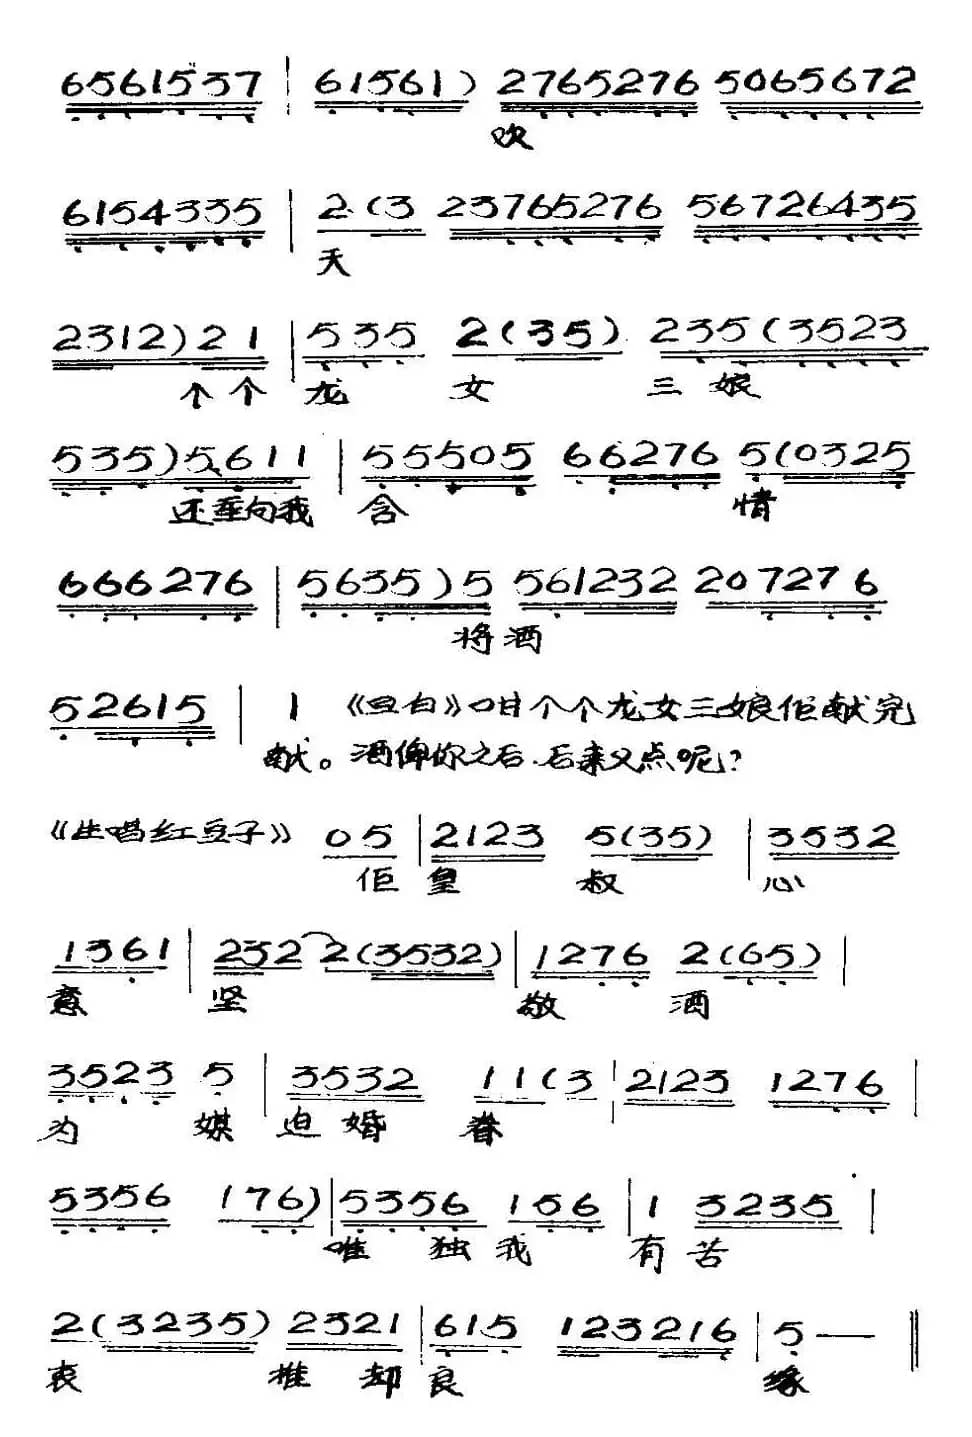 6561537 | 61561) 2765276 5065672
欢
6154335 | 2.(3 23765276 56726435
天
2312)21 | 535 2(35) 235(3523
个个 龙 女 三娘
535)5611 | 55505 66276 5(0325
还垂向我 含 情
666276 | 5635)5 561232 207276
将酒
52615 | 1 《旦白》咁个个龙女三娘佢献完
献。酒俾你之后.后来又点呢?
《生唱红豆子》 05 | 2123 5(35) | 3532
佢 皇 叔 心
1361 | 232 2(3532) | 1276 2(65) |
意 坚 敬 酒
3523 5 | 3532 11(3 | 2123 1276 |
为 媒 迫婚 眷
5356 176) | 5356 156 | 1 3235 |
唯 独我 有苦
2(3235) 2321 | 615 123216 | 5 —
衷 推 却 良 缘